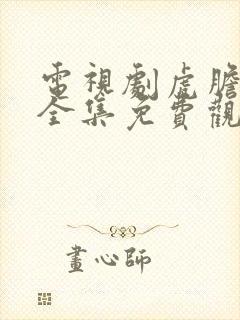 電視劇虎膽
全集免費觀
畫心師